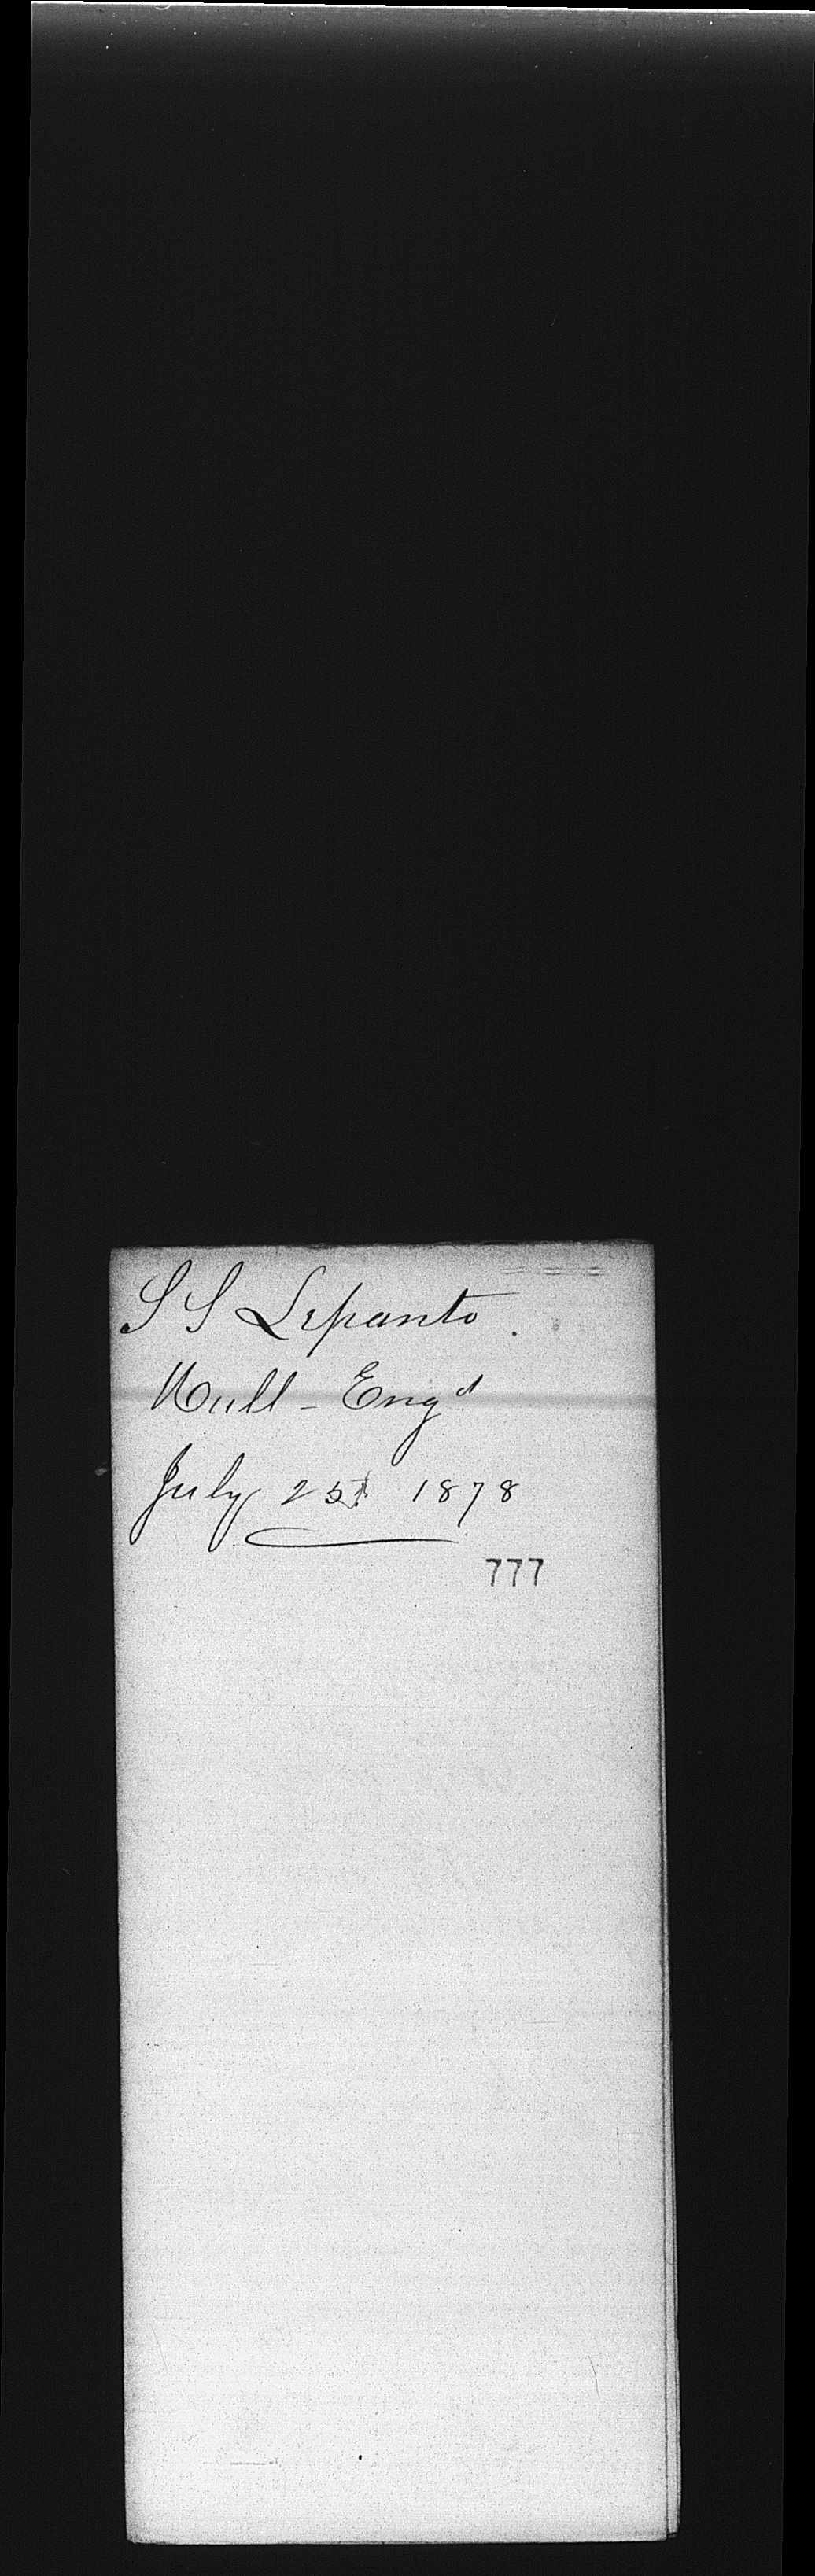 S S Lepanto.
Hull - Engd
July 25 1878
777